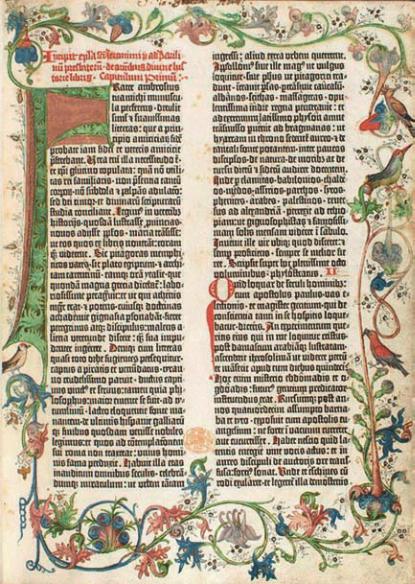 Incipit epistola sancti iheronimi ad paulinum
presbiterum de omnibus divine historie
libris. Capitulum primum.
Frater ambrosius
tua michi munuscula
perferens. detulit
simul et suavissimas
litteras: que a principio
amicicias fidem
probate iam fidei et veteris amicicie
preferebant. Vera enim illa necessitudo est.
et christi glutino copulata: quam non utilitas
rei familiaris. non presencia tantum
corporum. non subdola et palpans adulacio:
sed dei timor. et divinarum scripturarum
studia conciliant. Legimus in veteribus
historiis. quosdam lustrasse provincias.
novos adisse populos. maria transisse:
ut eos quos ex libris noverant: coram
quoque viderent. Sic pitagoras memphiticos
vates. sic plato egiptum. et architam
tarentinum. eamque oram ytalie que
quondam magna grecia dicebatur: laboriosissime
peragravit: ut qui athenis
magister erat. et potens. cuiusque doctrinas
achademie gignasia personabant. fieret
peregrinus atque discipulus: malens aliena
verecunde discere: quam sua impudenter
ingerere. Denique cum litteras
quasi toto orbe fugientes persequitur.
captus a piratis et venundatus. tyranno
crudelissimo paruit. ductus captivus
vinctus et servus: tamen quia philosophus.
maior emente se fuit. ad tytum
livium: lacteo eloquentie fonte manantem.
de ultimis hispanie galliarumque
finibus quosdam venisse nobiles
legimus: et quos ad contemplationem
sui roma non traxerat: unius hominis
fama perduxit. Habuit illa etas
inauditum omnibus seculis. celebrandumque
miraculum: ut urbem tantam
ingressi: aliud extra urbem quererent.
Apollonius sive ille magus ut vulgus
loquitur. sive philosophus ut pitagorici tradunt.
intravit persas. pertransivit caucasum
albanos. scithas. massagetas. opulentissima
indie regna penetravit: et
ad extremum latissimo physon amne
transmisso pervenit ad bragmanas: ut
hyarcam in throno sedentem aureo. et de
tantali fonte potantem. inter paucos
discipulos. de natura. de moribus ac de
cursu dierum et siderum audiret docentem.
Inde per elamitas. babilonios. chaldeos.
medos. assirios. parthos. syros.
phenices. arabes. palestinos. reversus
ad alexandriam. perrexit ad ethiopiam:
ut gignosophistas et famosissimam
solis mensam videret in sabulo.
Invenit ille vir ubique quod disceret: et
semper proficiens. semper se melior fieret.
Scripsit super hoc plenissime octo
voluminibus. phylostratus. II
Quid loquar de seculi hominibus:
cum apostolus paulus vas electionis.
et magister gentium. qui de
conscientia tanti in se hospitis loquebatur.
dicens. An experimentum queritis
eius qui in me loquitur christus.
post damascum arabiamque lustratam:
ascenderit iherosolimam ut videret petrum
et manserit apud eum diebus quindecim.
Hoc enim misterio ebdomadis et ogdoadis:
futurus gentium predicator
instruendus erat. Rursumque post annos
quatuordecim assumpto barnaba
et tyto. exposuit cum apostolis evangelium:
ne forte in vacuum curreret
aut cucurrisset. Habet nescio quid latentis
energie vive vocis actus: et in
aures discipuli de auctoris ore transfusa:
forcius sonat. Unde et eschines cum
rodi exularet. et legeretur illa demostenis